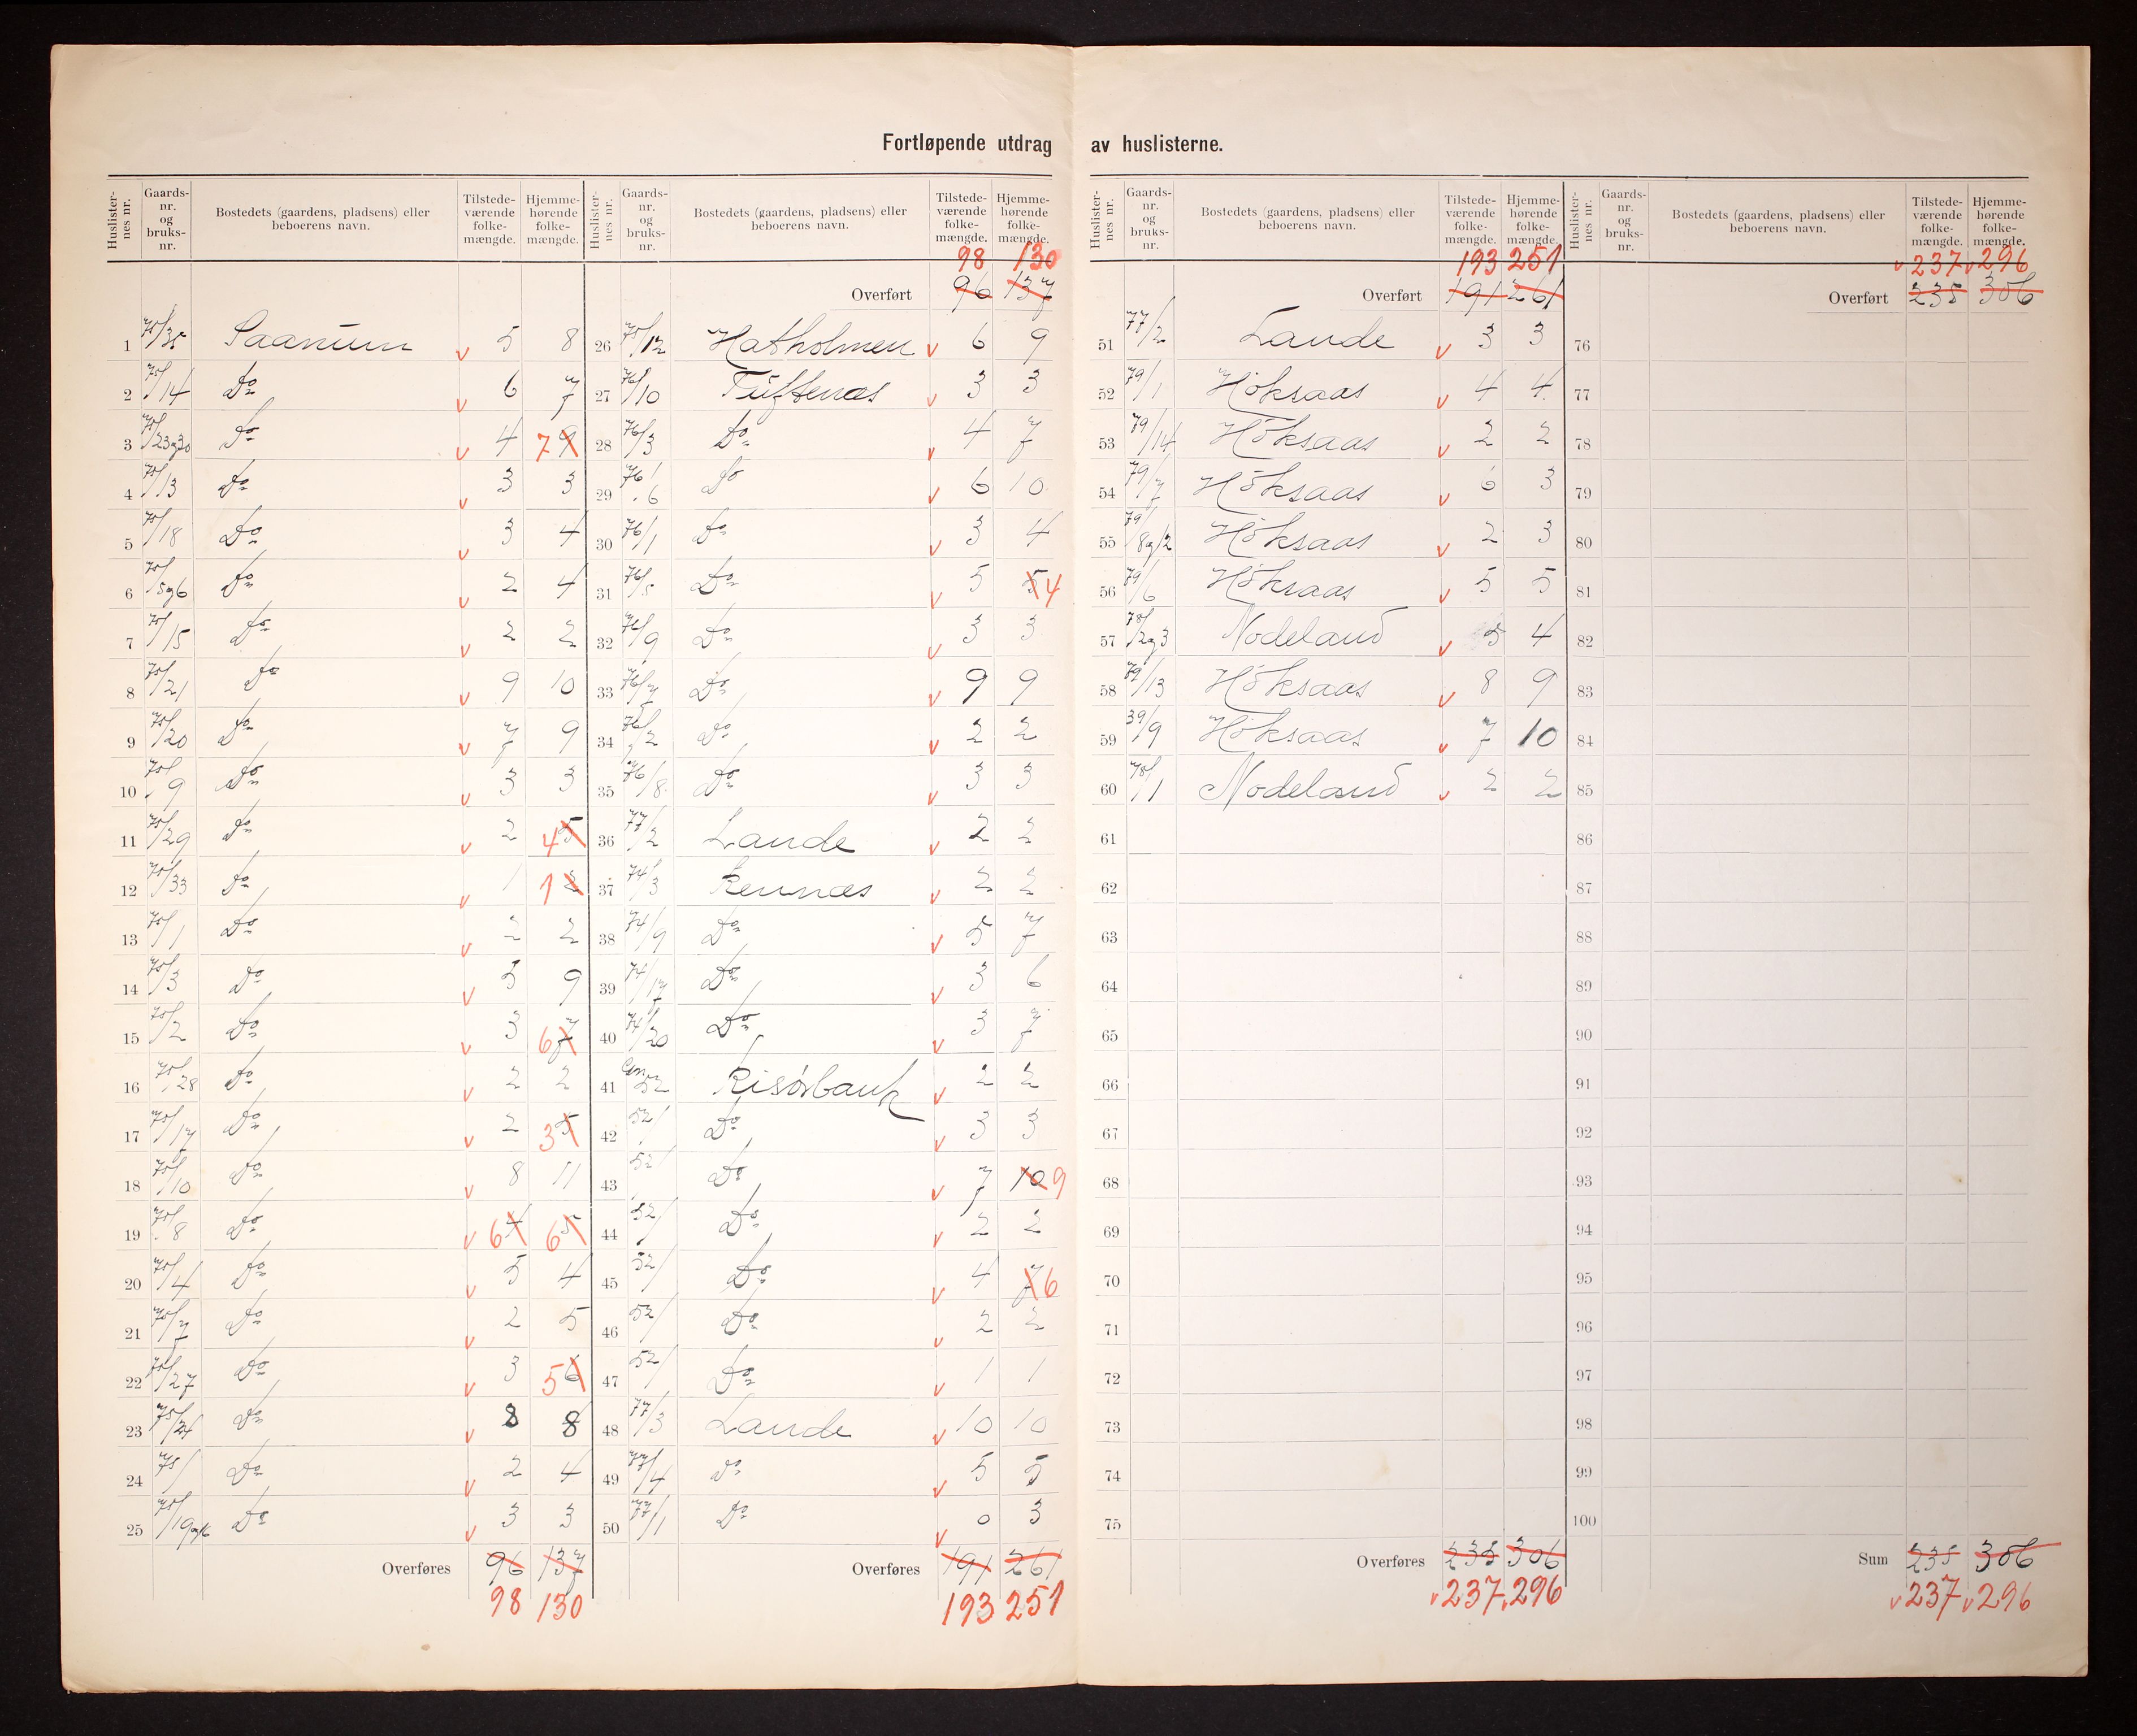 Fortløpende utdrag av huslisterne.
Huslister-nes nr. Gaards-nr. og bruks-nr. Bostedets (gaardens, pladsens) eller beboerens navn. Tilstede-værende folke-mængde. Hjemme-hørende folke-mængde.
1 75/35 Saanum 5 8
2 75/14 Do 6 7
3 75/23og30 Do 4 7 9
4 75/13 Do 3 3
5 75/18 Do 3 4
6 75/5og6 Do 2 4
7 75/15 Do 2 2
8 75/21 Do 9 10
9 75/20 Do 7 9
10 75/9 Do 3 3
11 75/29 Do 2 4 5
12 75/33 Do 1 1 2
13 75/1 Do 2 2
14 75/3 Do 5 9
15 75/2 Do 3 6 7
16 75/28 Do 2 2
17 75/17 Do 2 3 5
18 75/10 Do 8 11
19 75/8 Do 6 4 6 5
20 75/4 Do 5 4
21 75/7 Do 2 5
22 75/27 Do 3 5 6
23 75/24 Do 8 8
24 75/ Do 2 4
25 75/19 Do 3 3
Overføres 96 137
98 130
Huslister-nes nr. Gaards-nr. og bruks-nr. Bostedets (gaardens, pladsens) eller beboerens navn. Tilstede-værende folke-mængde. Hjemme-hørende folke-mængde.
98 130
Overført 96 137
26 75/12 Hatholmen 6 9
27 76/10 Tuftenæs 3 3
28 76/3 Do 4 7
29 76/6 Do 6 10
30 76/1 Do 3 4
31 76/5 Do 5 5 4
32 76/9 Do 3 3
33 76/7 Do 9 9
34 76/2 Do 2 2
35 76/8 Do 3 3
36 77/2 Lande 2 2
37 74/3 Rennæs 2 2
38 74/9 Do 5 7
39 74/17 Do 3 6
40 74/20 Do 3 7
41 52 Risørbank 2 2
42 52/ Do 3 3
43 52/ Do 7 10 9
44 52/ Do 2 2
45 52/ Do 4 7 6
46 52/ Do 2 2
47 52/ Do 1 1
48 77/3 Lande 10 10
49 77/4 Do 5 5
50 77/1 Do 0 3
Overføres 191 261
193 251
Huslister-nes nr. Gaards-nr. og bruks-nr. Bostedets (gaardens, pladsens) eller beboerens navn. Tilstede-værende folke-mængde. Hjemme-hørende folke-mængde.
193 251
Overført 191 261
51 77/2 Lande 3 3
52 79/1 Höksaas 4 4
53 79/14 Höksaas 2 2
54 79/7 Höksaas 6 3
55 79/8og12 Höksaas 2 3
56 79/6 Höksaas 5 5
57 78/2og3 Nodeland 5 4
58 79/13 Höksaas 8 9
59 39/9 Höksaas 7 10
60 78/1 Nodeland 2 2
61
62
63
64
65
66
67
68
69
70
71
72
73
74
75
Overføres 235 306
237 296
Huslister-nes nr. Gaards-nr. og bruks-nr. Bostedets (gaardens, pladsens) eller beboerens navn. Tilstede-værende folke-mængde. Hjemme-hørende folke-mængde.
237 296
Overført 235 306
76
77
78
79
80
81
82
83
84
85
86
87
88
89
90
91
92
93
94
95
96
97
98
99
100
Sum 235 306
237 296